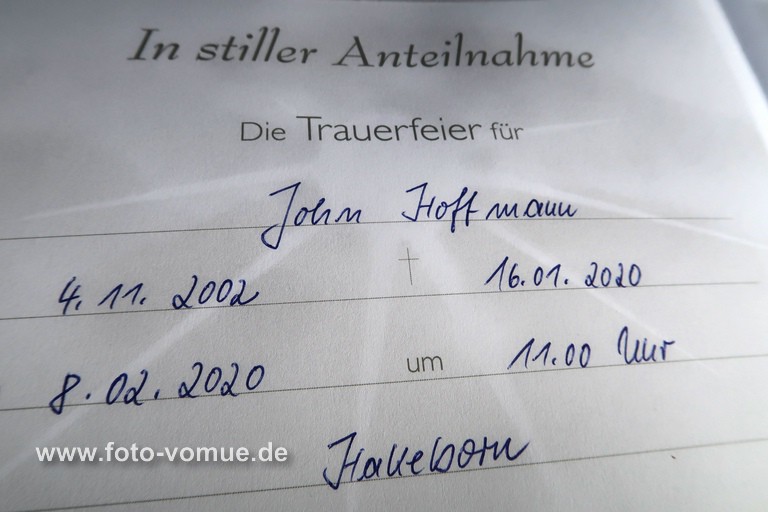 In stiller Anteilnahme
Die Trauerfeier für
John Hoffmann
4. 11. 2002 † 16.01. 2020
8. 02. 2020 um 11.00 Uhr
Hakeborn
www.foto-vomue.de